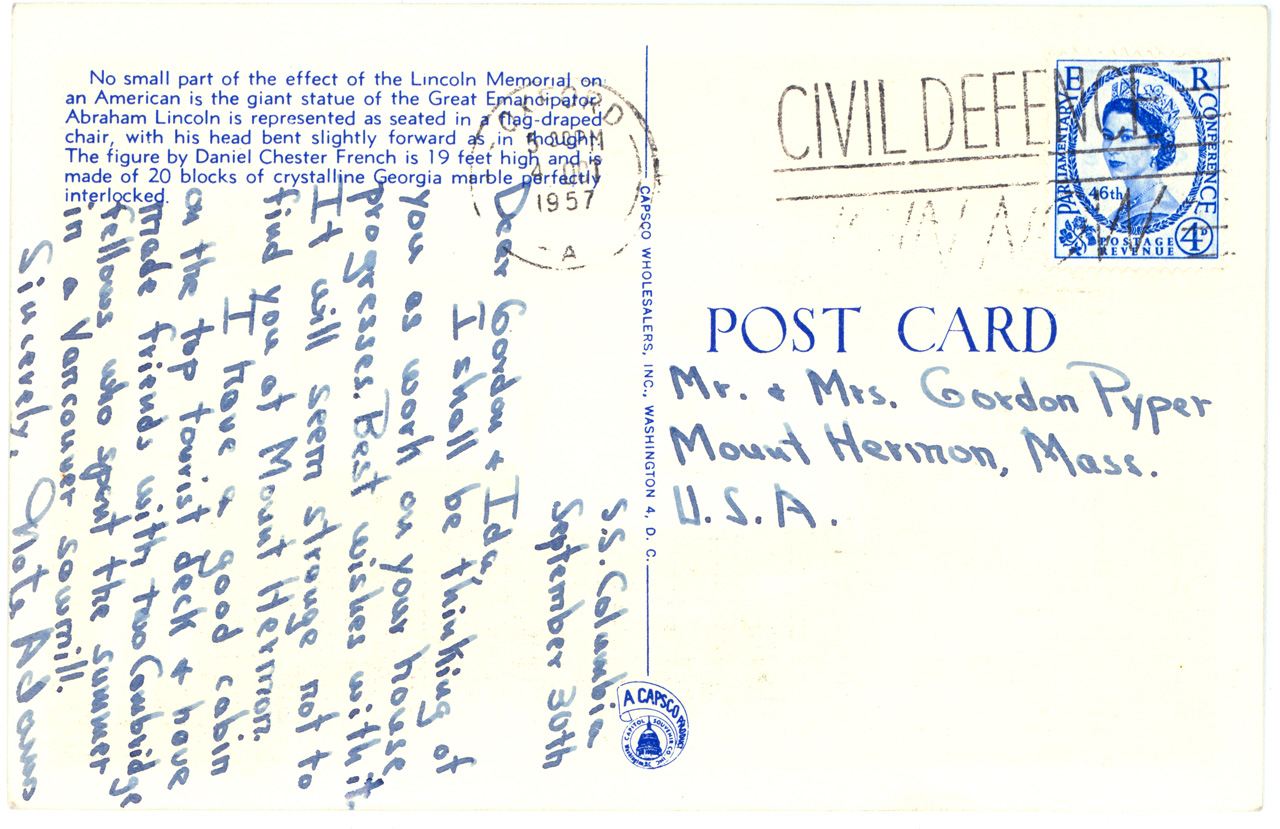 No small part of the effect of the Lincoln Memorial on
an American is the giant statue of the Great Emancipator.
Abraham Lincoln is represented as seated in a flag-draped
chair, with his head bent slightly forward as in thought.
The figure by Daniel Chester French is 19 feet high and is
made of 20 blocks of crystalline Georgia marble perfectly
interlocked.
S.S. Columbia
September 30th
Dear Gordon & Ida,
I shall be thinking of
you as work on your house
progresses. Best wishes with it.
It will seem strange not to
find you at Mount Hermon.
I have a good cabin
on the top tourist deck & have
made friends with two Cambridge
fellows who spent the summer
in a Vancouver sawmill.
Sincerely,
Adams
CAPSCO WHOLESALERS, INC., WASHINGTON 4, D. C.
A CAPSCO PRODUCT
CAPITOL SOUVENIR CO INC
OXFORD
5 00PM
4 OCT
1957
A
CIVIL DEFENCE
E R
PARLIAMENTARY
CONFERENCE
46th
POSTAGE
REVENUE
4D
POST CARD
Mr. & Mrs. Gordon Pyper
Mount Hermon, Mass.
U.S.A.